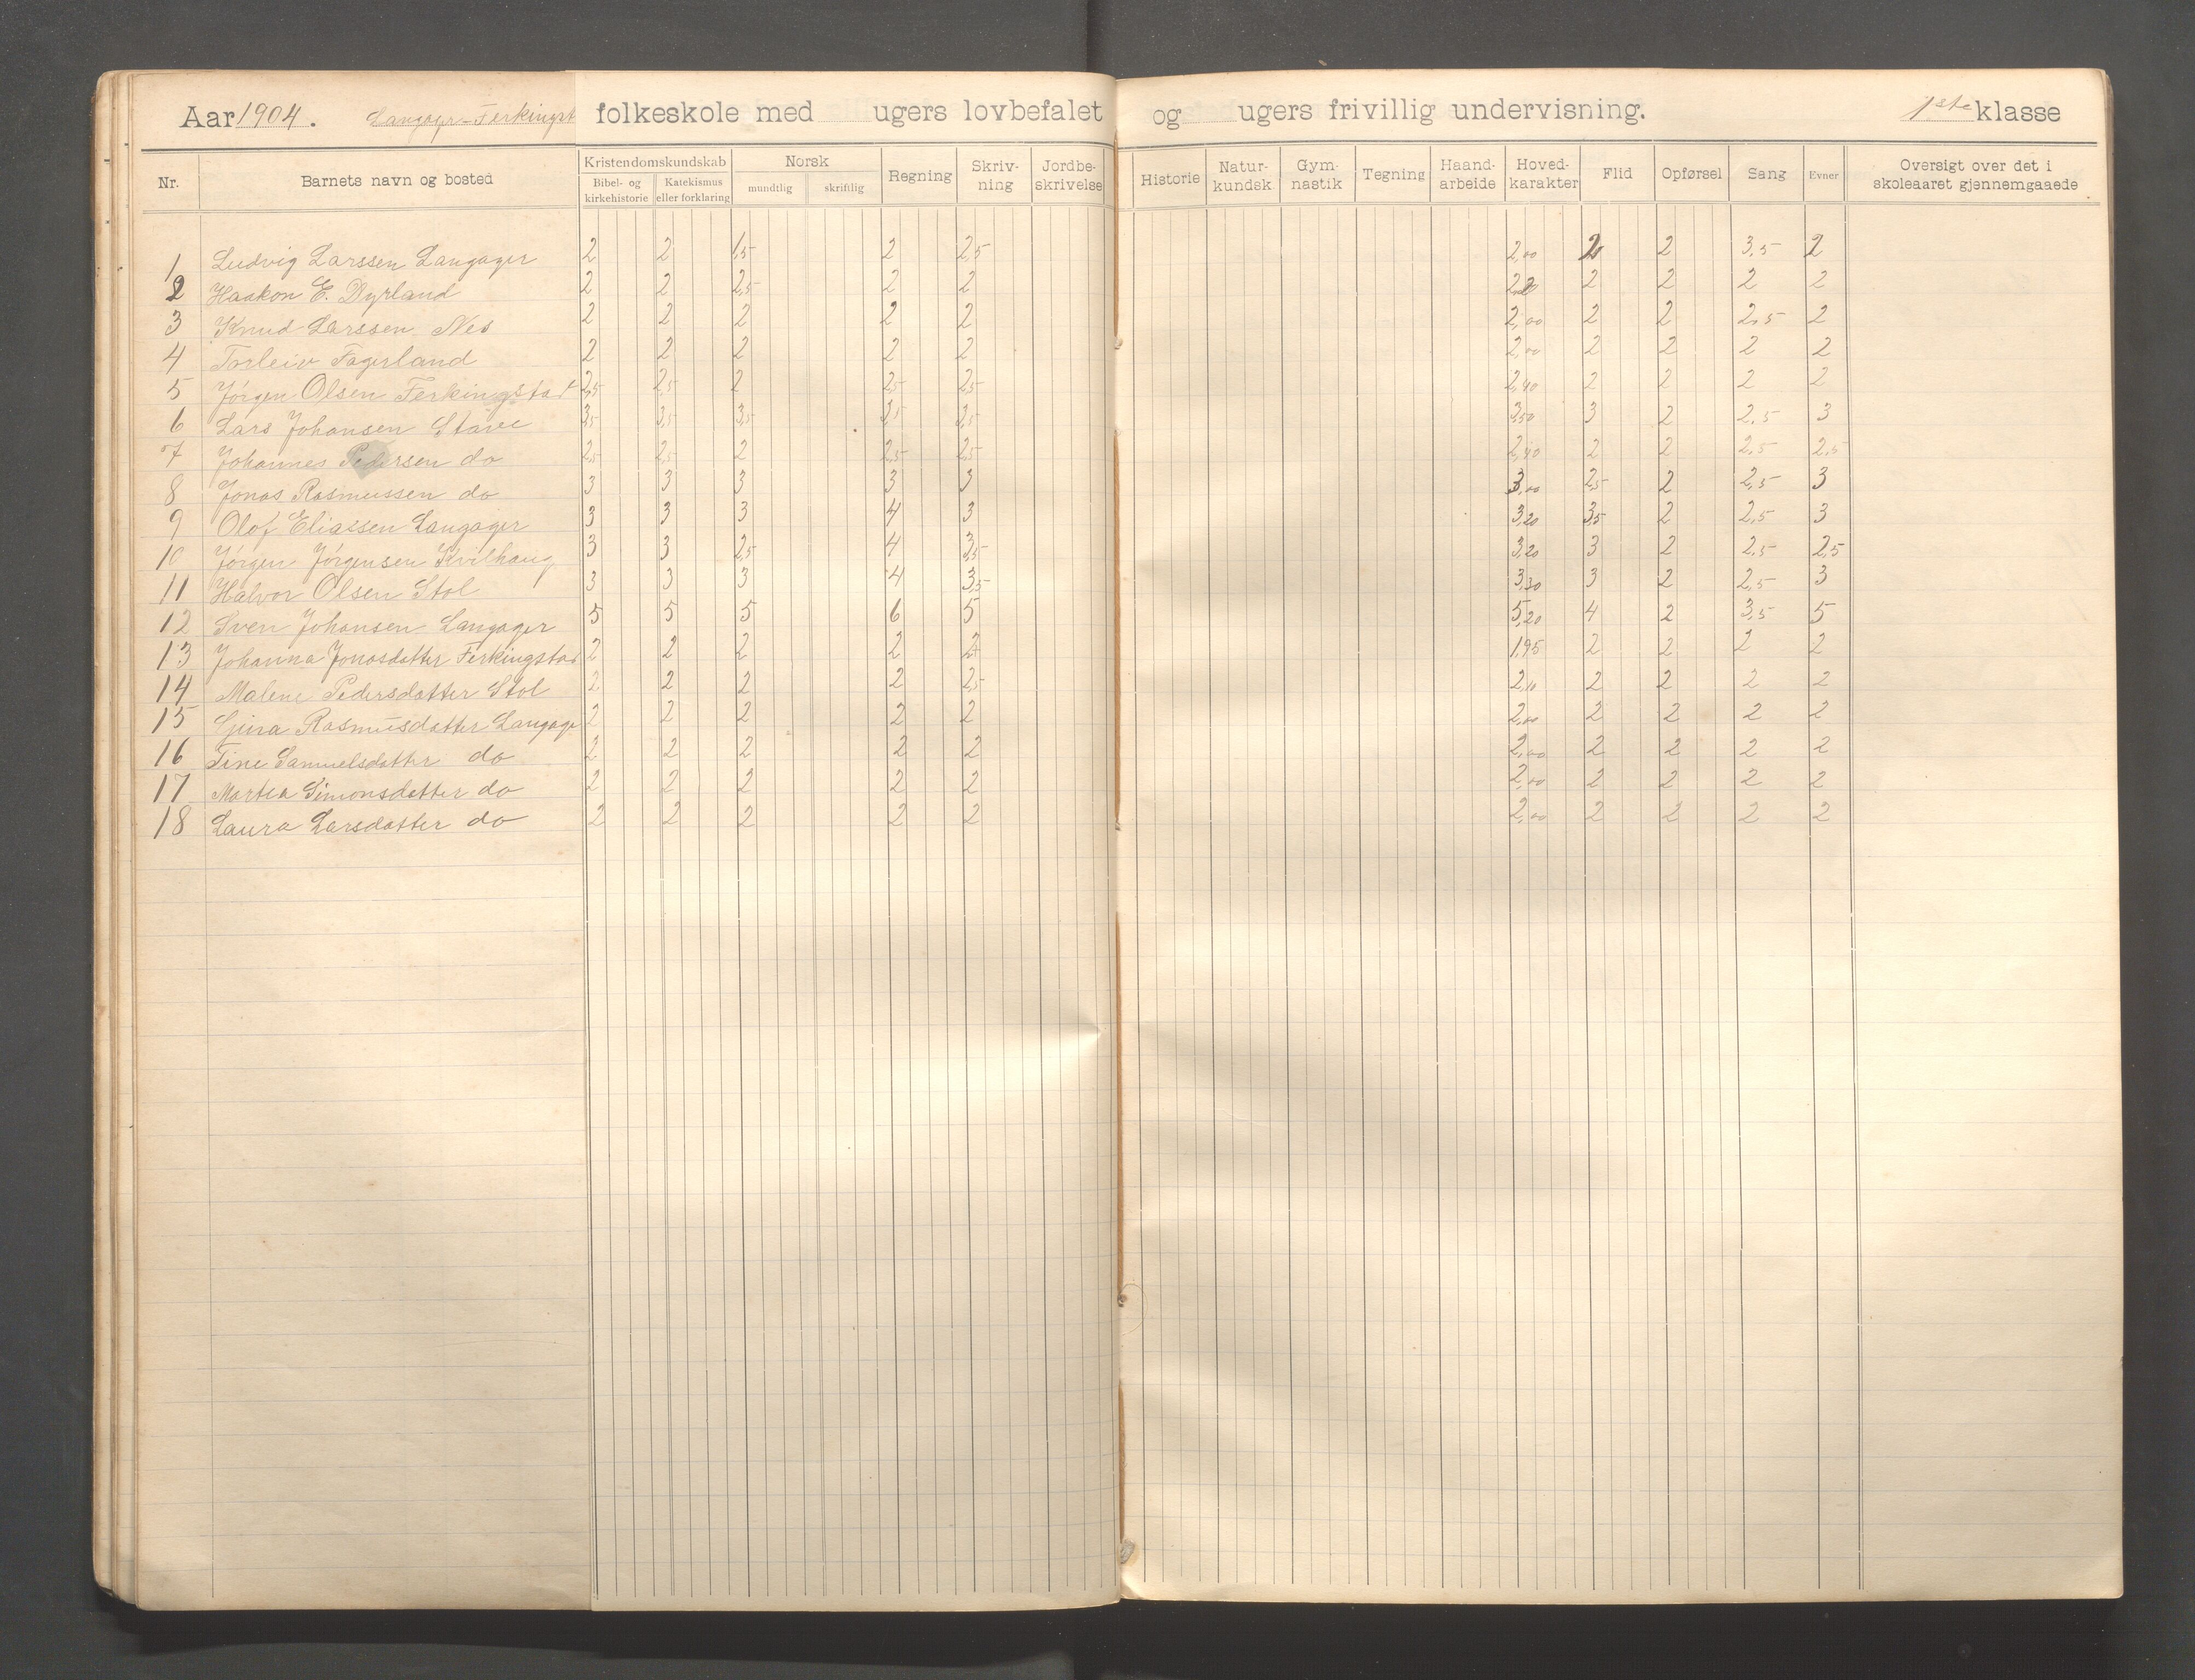 Aar 1904. Langager-Ferkingst folkeskole med ugers lovbefalet og ugers frivillig undervisning. 1ste klasse
Nr. Barnets navn og bosted Kristendomskundskab Bibel- og kirkehistorie Katekismus eller forklaring Norsk mundtlig skriftlig Regning Skriv-ning Jordbe-skrivelse Historie Natur-kundsk Gym-nastik Tegning Haand-arbeide Hoved-karakter Flid Opførsel Sang Evner Oversigt over det i skoleaaret gjennemgaaede
1 Ludvig Larssen Langager 2 2 1,5 2 2,5 2,00 2 2 3,5 2
2 Haakon E. Dyrland 2 2 2,5 2 2 2 2 2 2
3 Knud Larssen Nes 2 2 2 2 2 2,00 2 2 2,5 2
4 Torleiv Fagerland 2 2 2 2 2 2,00 2 2 2 2
5 Jörgen Olsen Ferkingstad 2,5 2,5 2 2,5 2,5 2,40 2 2 2 2
6 Lars Johansen Stave 3,5 3,5 3,5 3,5 3,5 3,50 3 2 2,5 3
7 Johannes Pedersen do 2,5 2,5 2 2,5 2,5 2,40 2 2 2,5 2,5
8 Jonas Rasmussen do 3 3 3 3 3 3,00 2,5 2 2,5 3
9 Olof Eliassen Langager 3 3 3 4 3 3,20 3,5 2 2,5 3
10 Jörgen Jörgensen Kvilhaug 3 3 2,5 4 3,5 3,20 3 2 2,5 2,5
11 Halvor Olsen Stol 3 3 3 4 3,5 3,30 3 2 2,5 3
12 Sven Johansen Langager 5 5 5 6 5 5,20 4 2 3,5 5
13 Johanna Jonasdatter Ferkingstad 2 2 2 2 2 1,95 2 2 2 2
14 Malene Pedersdatter Stol 2 2 2 2 2,5 2,10 2 2 2 2
15 Rasmusdatter Langage 2 2 2 2 2 2,00 2 2 2 2
16 Tine Samuelsdatter do 2 2 2 2 2 2,00 2 2 2 2
17 Martea Simonsdatter do 2 2 2 2 2 2,00 2 2 2 2
18 Laura Larsdatter do 2 2 2 2 2 2,00 2 2 2 2